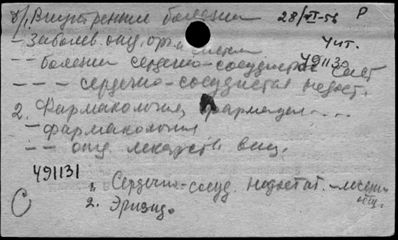 б/1, Внутренние болезни 28/VI-56 Р
– Заболев. отд. орг. и систем Чит.
– – болезни сердечно-сосудистой сист. 491130
– – – сердечно-сосудистая недост.
2. Фармакология, фармация....
– фармакология
– – отд. лекарств. вещ.
491131
1. Сердечно-сосуд. недостат. –
С 2. Эризид.